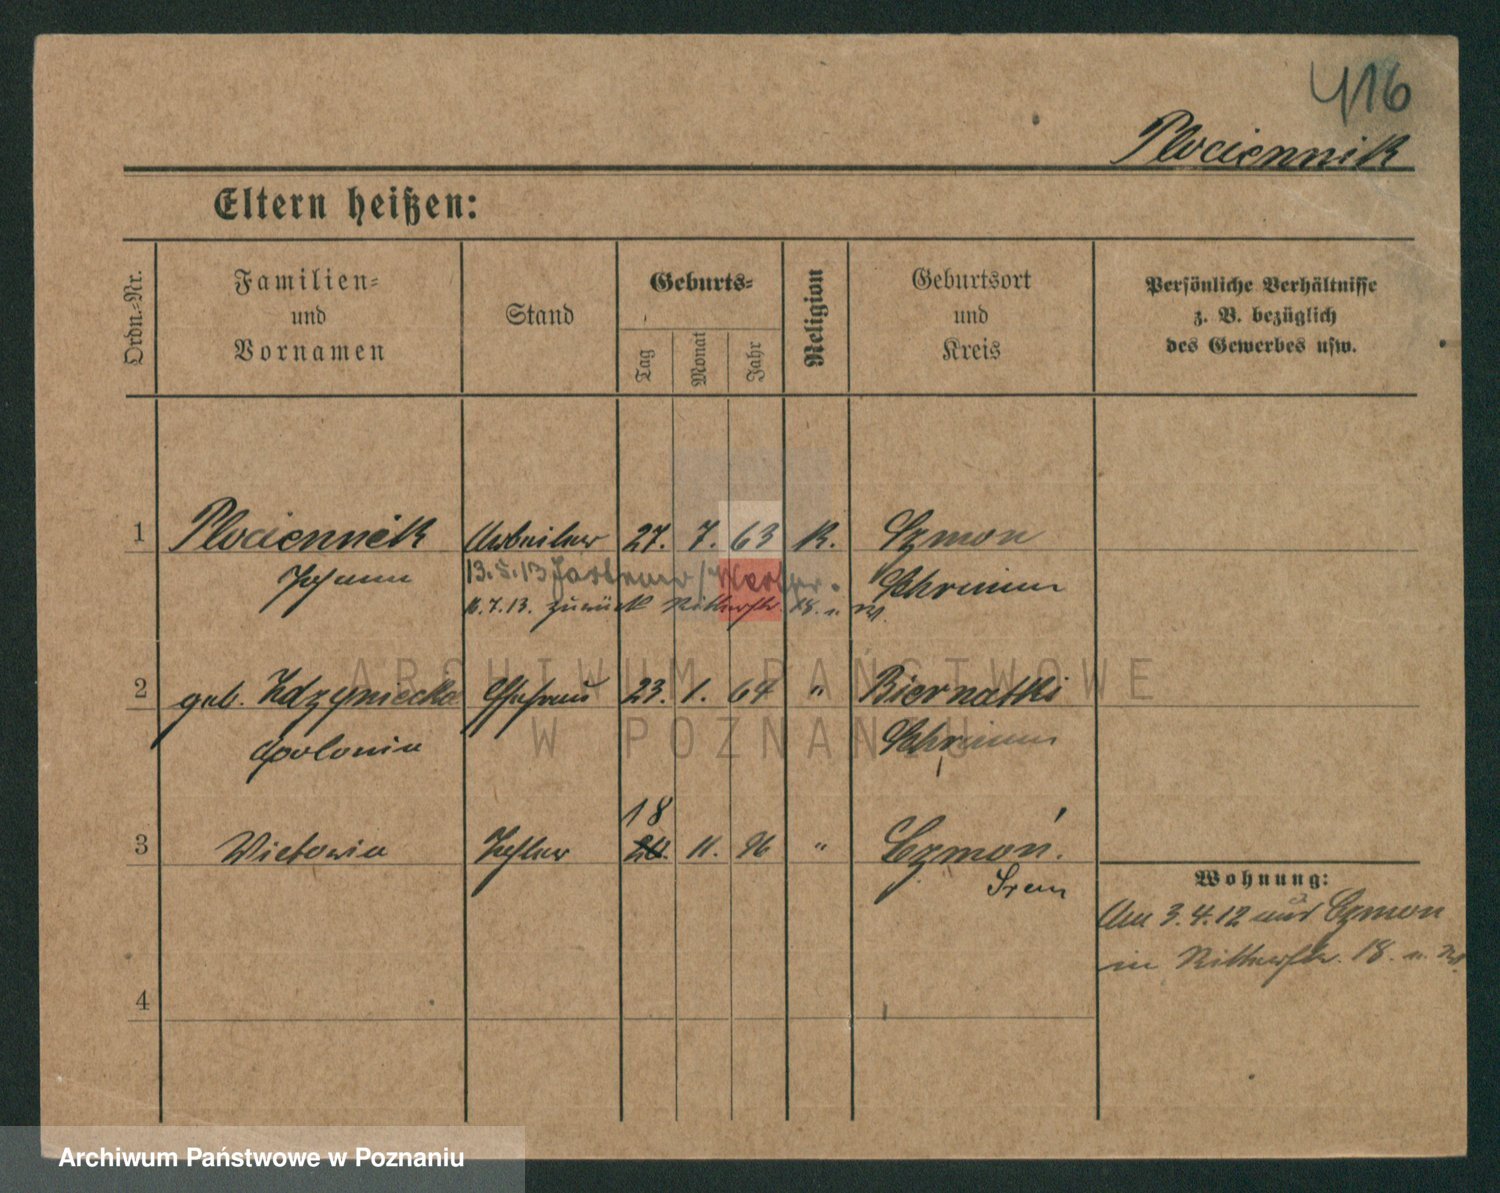 416
Plociennik
Eltern heißen:
Ordn.-Nr.
Familien-
und
Vornamen
Stand
Geburts-
Tag
Monat
Jahr
Religion
Geburtsort
und
Kreis
Persönliche Verhältnisse
z. B. bezüglich
des Gewerbes usw.
1 Plociennik Arbeiter 27. 7. 63 K. Czmon
Johann 13.5.13 Schrimm
11.7.13. zurück Ritterstr. 18. u.
ARCHIWUM PAŃSTWOWE
W POZNANIU
2 geb. Zdzyniecka Ehefrau 23. 1. 64 " Biernatki
Apolonia Schrimm
18
3 Victoria Tochter 11. 96 " Czmoń.
Srem
Wohnung:
Am 3.4.12 aus Czmon
in Ritterstr. 18. u.
4
Archiwum Państwowe w Poznaniu